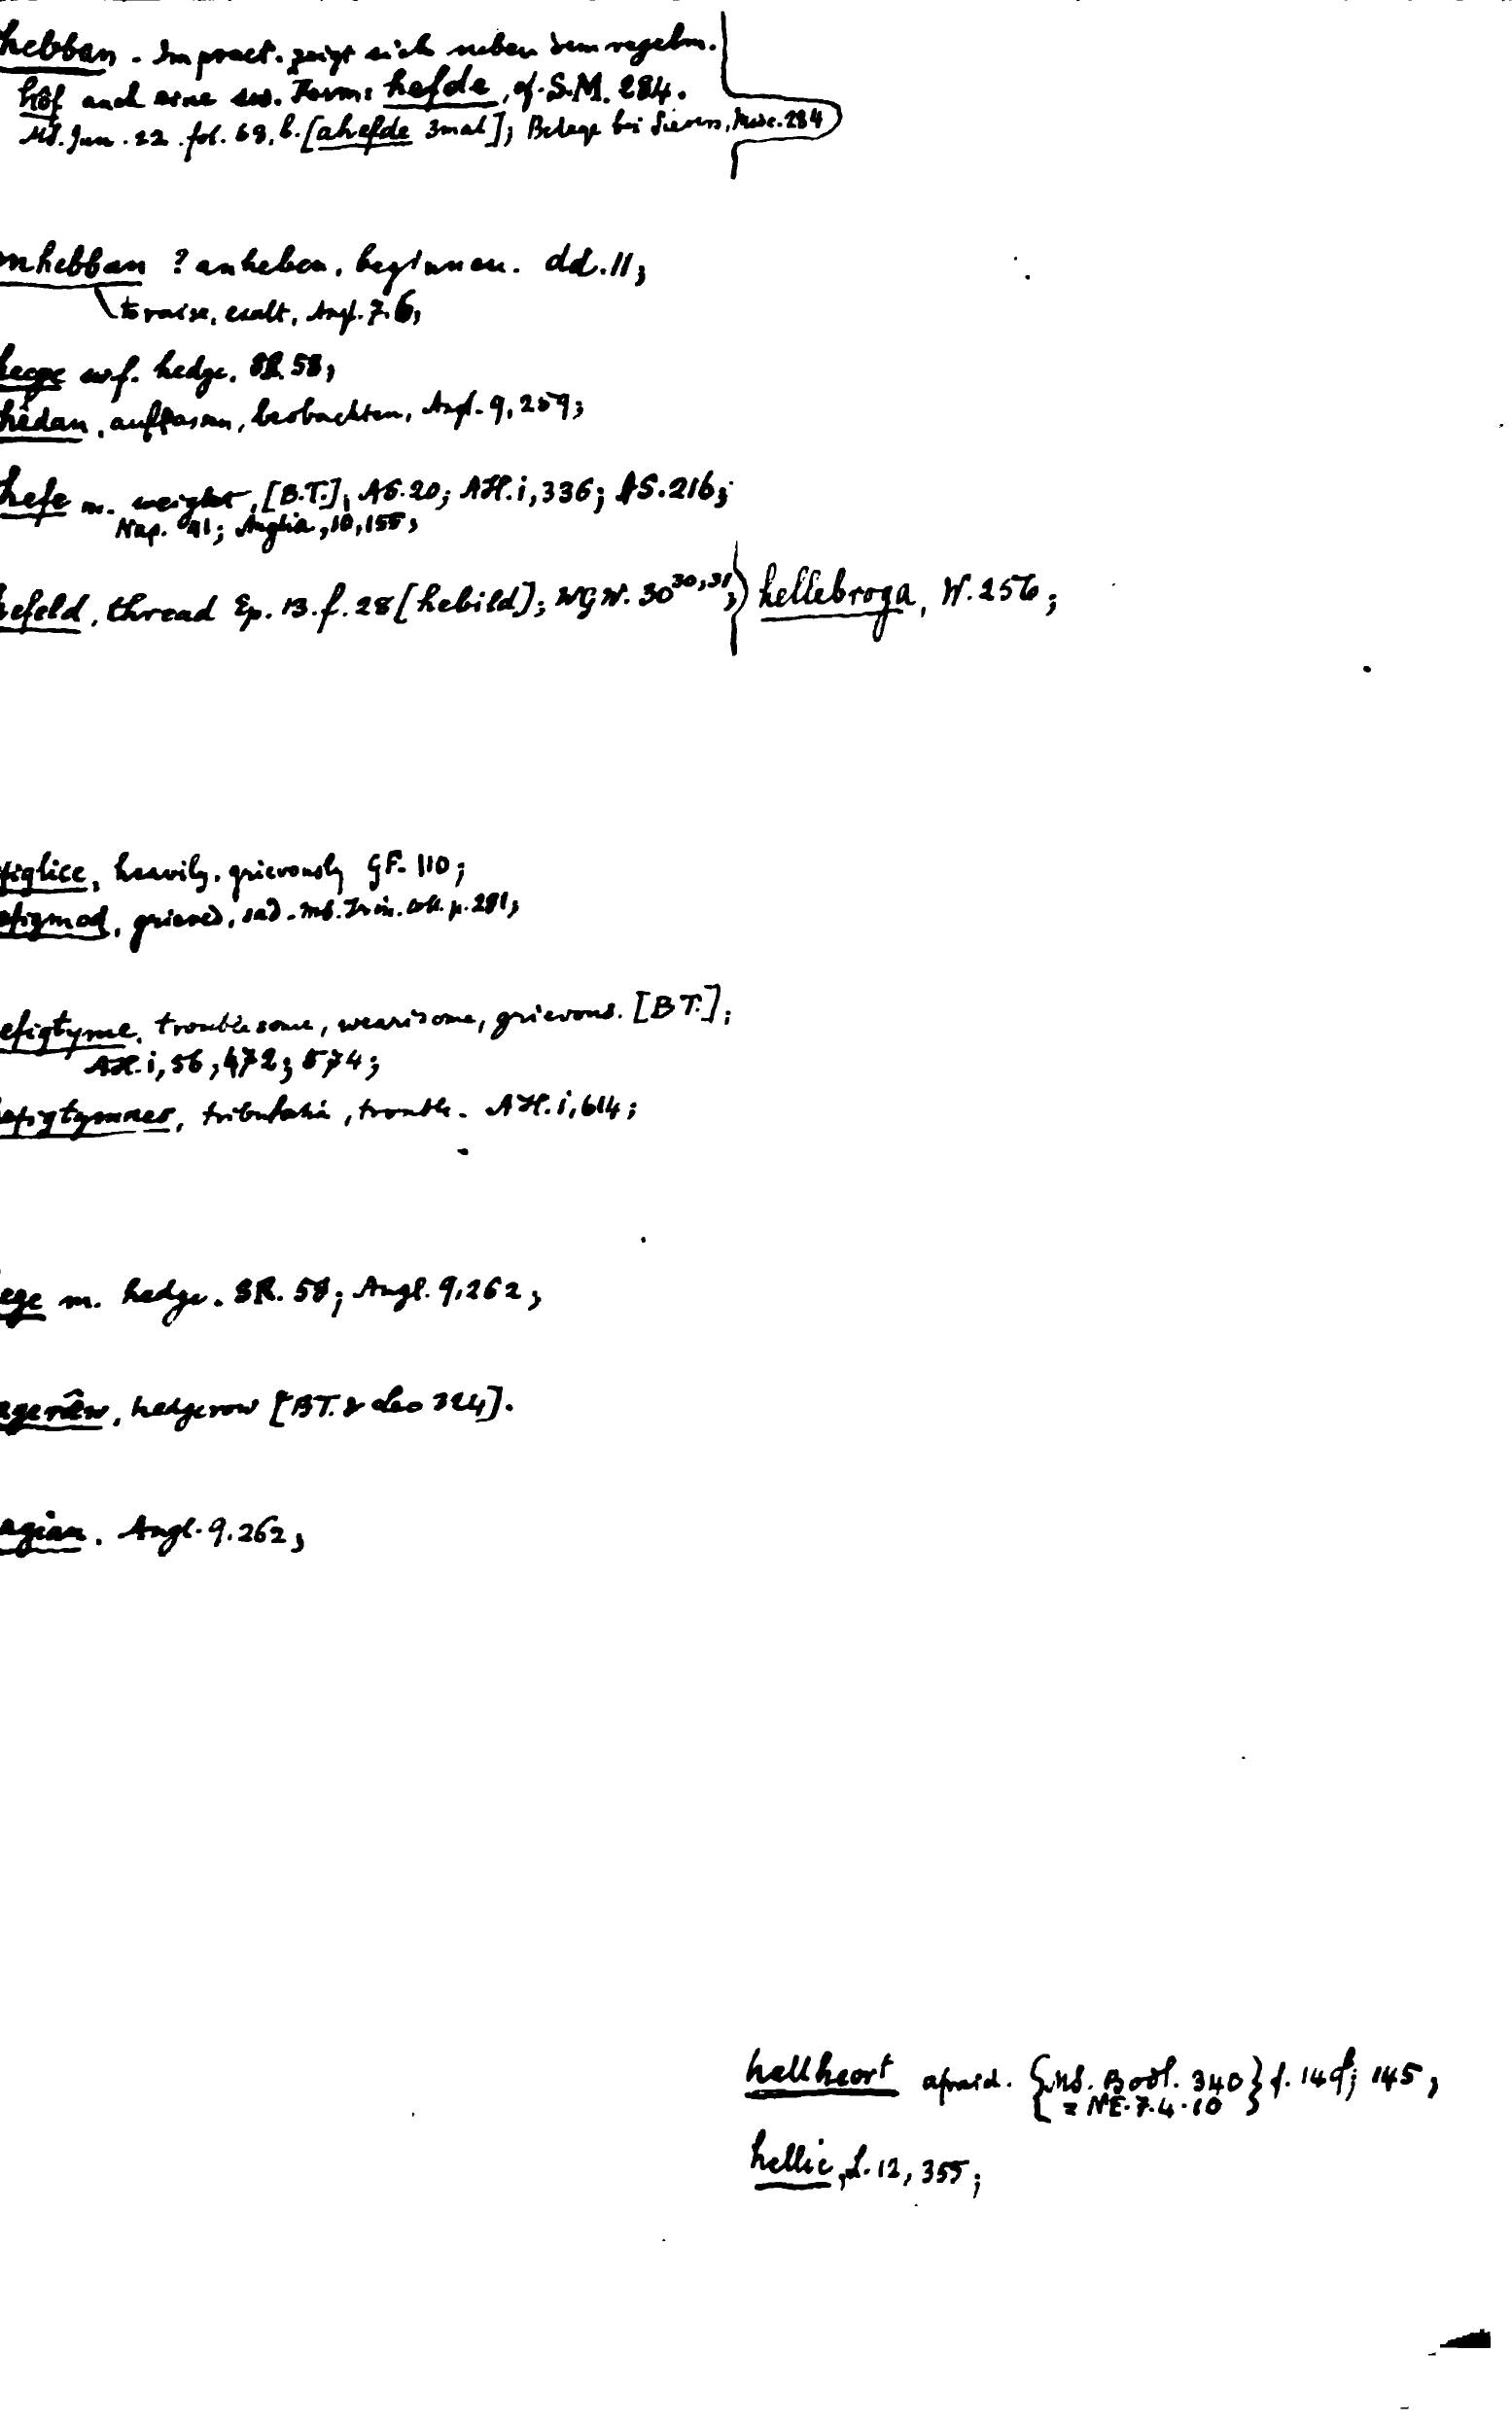 hebban. Im praet. zeigt sich neben dem regelm.
hôf auch eine sw. Form: hefde, cf. S.M. 284.
MS. Jun. 22. fol. 68, b. [ahefde 3mal]; Belege bei Sievers, Misc. 284
onhebban ? anheben, beginnen. dd. 11;
to raise, exalt, Angl. 7. 6;
hecge swf. hedge. SR. 58;
hêdan, auffassen, beobachten, Angl. 9, 259;
hefe m. weight, [B.T.]; AS. 20; AH. i, 336; AS. 216;
Nap. 41; Anglia, 10, 155;
hefeld, thread Ep. 13. f. 28 [hebild]; WGW. 30 30,31; hellebroga, W. 256;
figlice, heavily, grievously GF. 110;
efigmod, grieved, sad. MS. Trin. Coll. p. 281;
efigtyme, troublesome, wearisome, grievous. [BT.];
AH. i, 56, 472; 574;
efigtymnes, tribulatio, trouble. AH. i, 614;
ege m. hedge. SR. 58; Angl. 9, 262;
egerêw, hedgerow [BT. & Leo 324].
agian. Angl. 9. 262;
hellheort afraid. {MS. Bodl. 340} f. 149; 145;
= NE. 7. 4. 10
hellic, L. 12, 355;